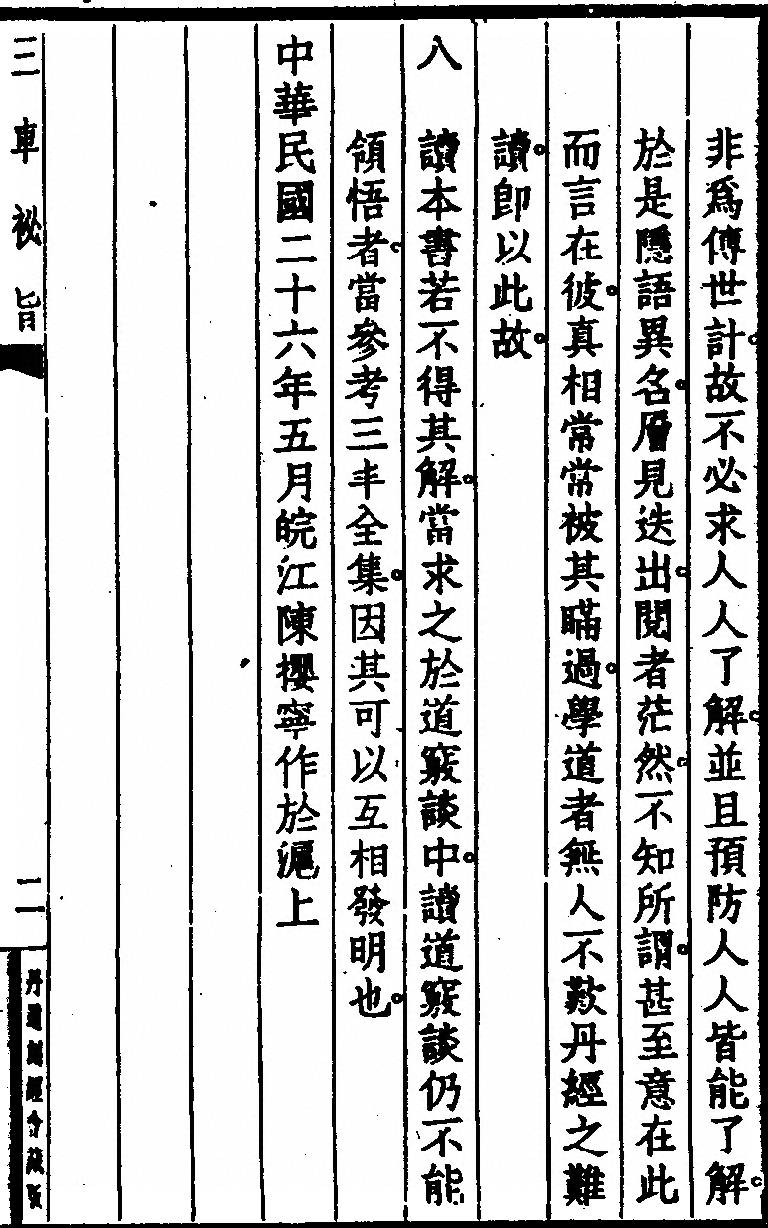 非爲傳世計。故不必求人人了解。並且預防人人皆能了解。
於是隱語異名。層見迭出。閱者茫然。不知所謂。甚至意在此
而言在彼。真相常常被其瞞過。學道者無人不歎丹經之難
讀。卽以此故。
八 讀本書若不得其解。當求之於道竅談中。讀道竅談仍不能
領悟者。當參考三丰全集。因其可以互相發明也。
中華民國二十六年五月皖江陳攖寧作於滬上
三車祕旨
二
丹道刻經會藏版